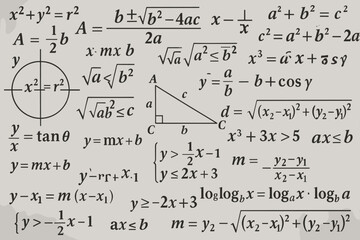 x²+y² = r²
A = b±√b²-4ac / 2a
x - 1/x
a²+b² = c²
A = 1/2 b
x·mx b
√√a √a²≤b²
c² = a²+b²-2a
y
x³ =
x² = r²
√a < √b²
y = a/b - b + cos γ
A
a
c
C
b
C
√√ab² ≤ c
d = √(x₂-x₁)²+(y₂-y)²
y/x = tan θ
y = mx+b
x³+3x>5
ax≤b
y = mx+b
{y > 1/2 x-1
y ≤ 2x+3
m = y₂-y₁ / -x₂-x₂
y-x₁ = m(x-x₁)
y ≥ -2x+3
log log_b x = log_a x · log_b a
{y > -1/2 x-1
ax≤b
m = y₂ - √(x₂-x₁)²+(y₂-y₁)²